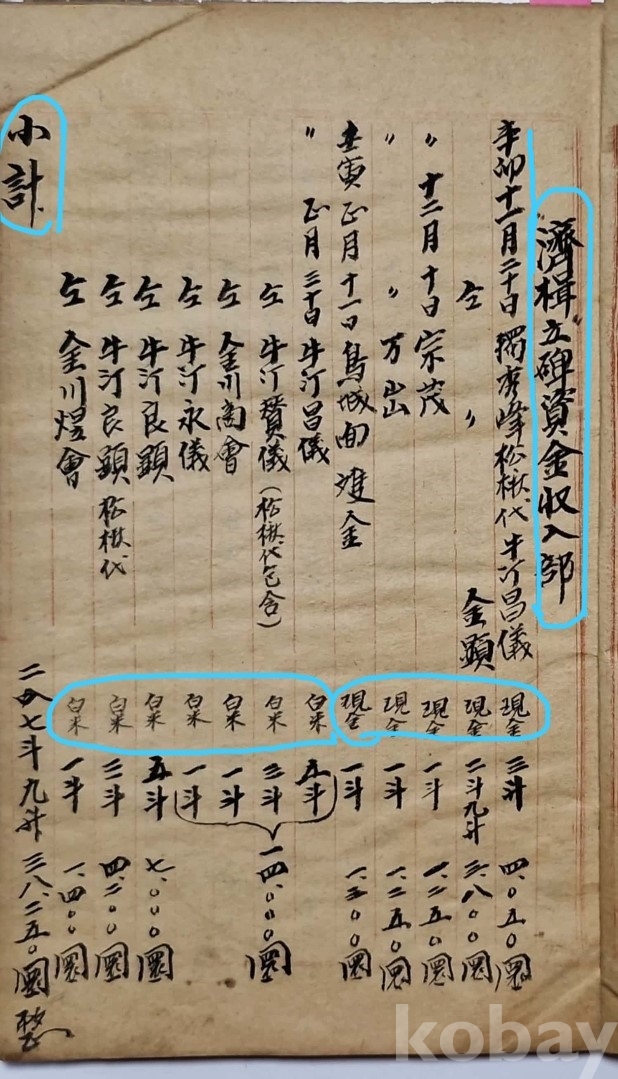 濟楫立碑資金収入部
辛卯十一月二十日 獨秀峰松楸代 牛汀昌儀 現金 三斗 四.〇五〇圜
仝 〃 金顕 現金 二斗九升 三.八〇〇圜
〃 十二月十日 宗茂 現金 一斗 一.二五〇圜
〃 〃 万山 現金 一斗 一.二五〇圜
壬寅正月十一日 鳥城 雄金 現金 一斗 一.三〇〇圜
〃 正月三十日 牛汀昌儀 白米 五斗
仝 牛汀賛儀(松楸代包含) 白米 三斗 一四.〇〇〇圜
仝 金川商會 白米 一斗
仝 牛汀永儀 白米 一斗
仝 牛汀良顕 白米 五斗 七.〇〇〇圜
仝 牛汀良顕 松楸代 白米 三斗 四.二〇〇圜
仝 金川煜會 白米 一斗 一.四〇〇圜
小計 二七斗九升 三八.二五〇圜整
kobay